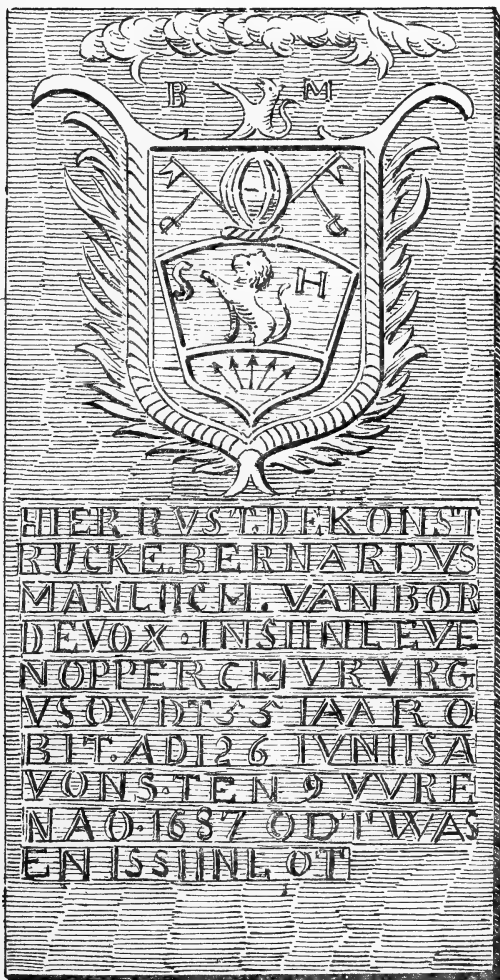 B M
S H
HIER RVST.DEKONST
RUCKE.BERNARDVS
MANLIICM. VAN BOR
DEVOX.INSIINLEVE
NOPPERCHVRVRG
VSOVDT 55 IAAR O
BIT.ADI26 IVNIISA
VONS.TEN 9 VVRE
NAO.1687 ODTWAS
EN ISSIINL OT